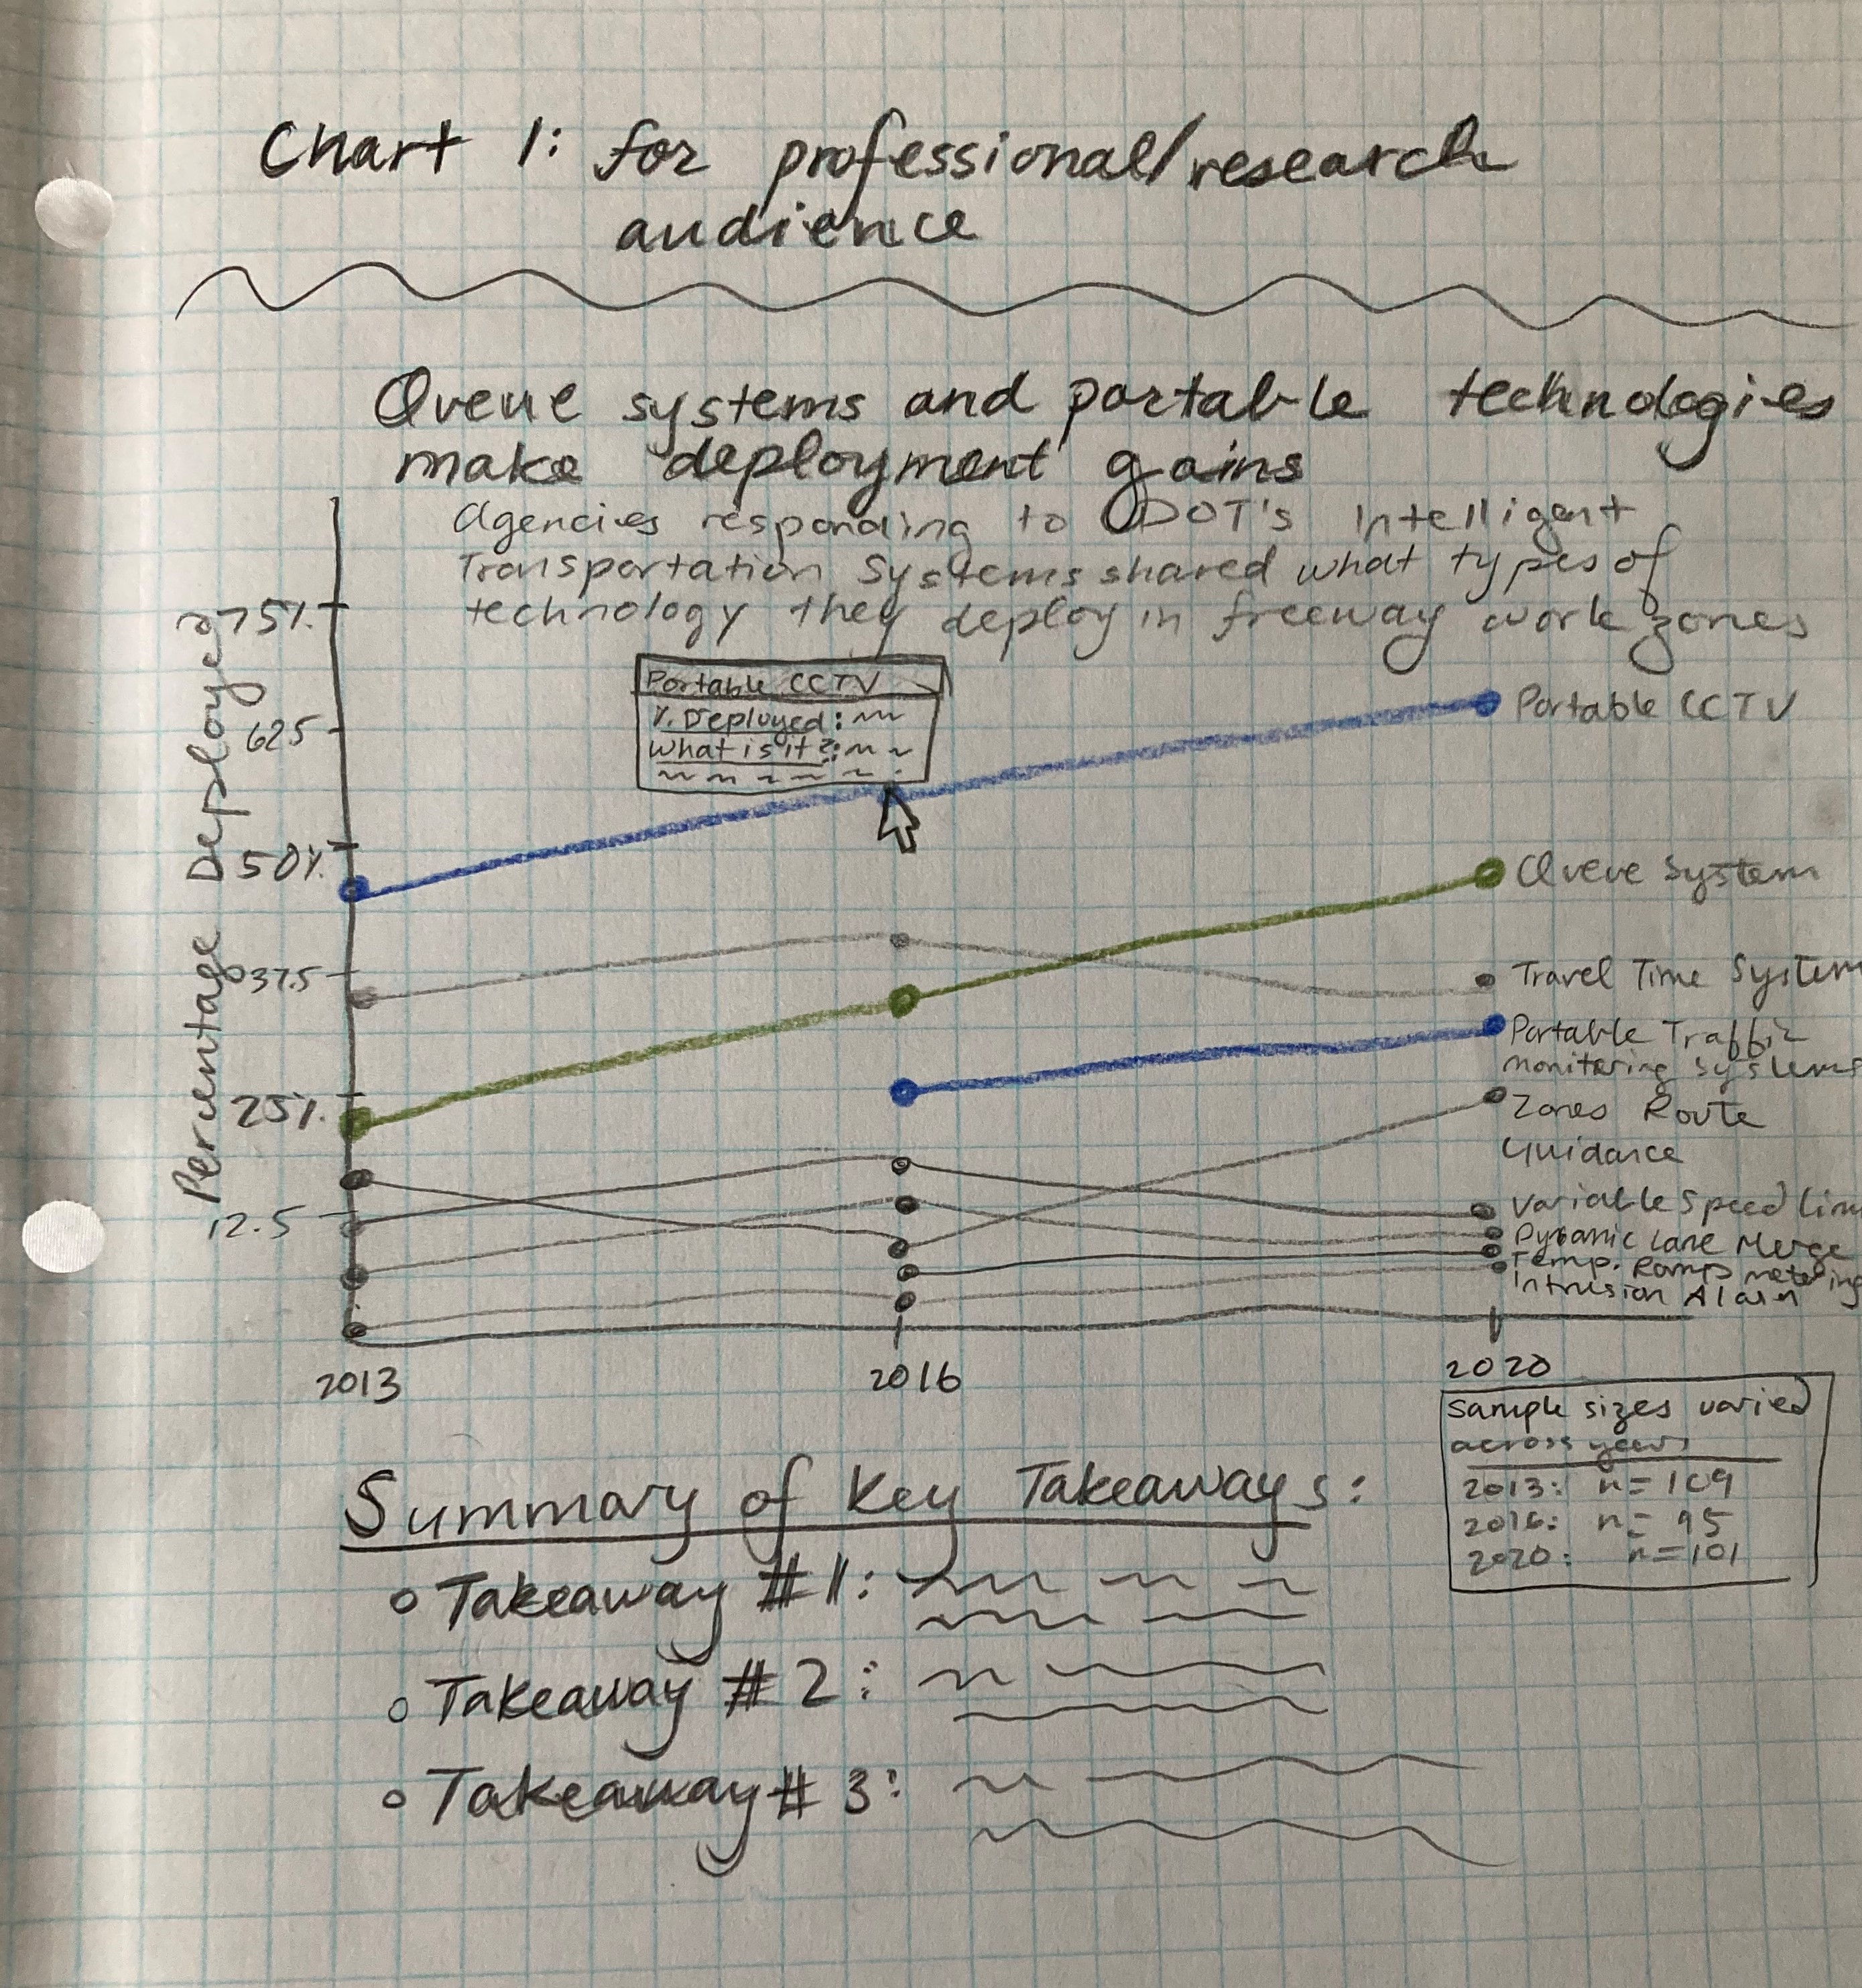 Chart 1: for professional/research
audience
Queue systems and portable technologies
make deployment gains
Agencies responding to DOT's Intelligent
Transportation Systems shared what types of
technology they deploy in freeway work zones
Percentage Deployed
75%
62.5
50%
37.5
25%
12.5
Portable CCTV
% Deployed:
What is it?:
Portable CCTV
Queue System
Travel Time System
Portable Traffic
monitoring systems
Zones Route
Guidance
Variable Speed Lim
Dynamic Lane Merge
Temp. Ramp metering
Intrusion Alarm
2013
2016
2020
Sample sizes varied
across years
2013: n=109
2016: n= 95
2020: n=101
Summary of Key Takeaways:
Takeaway #1:
Takeaway #2:
Takeaway #3: